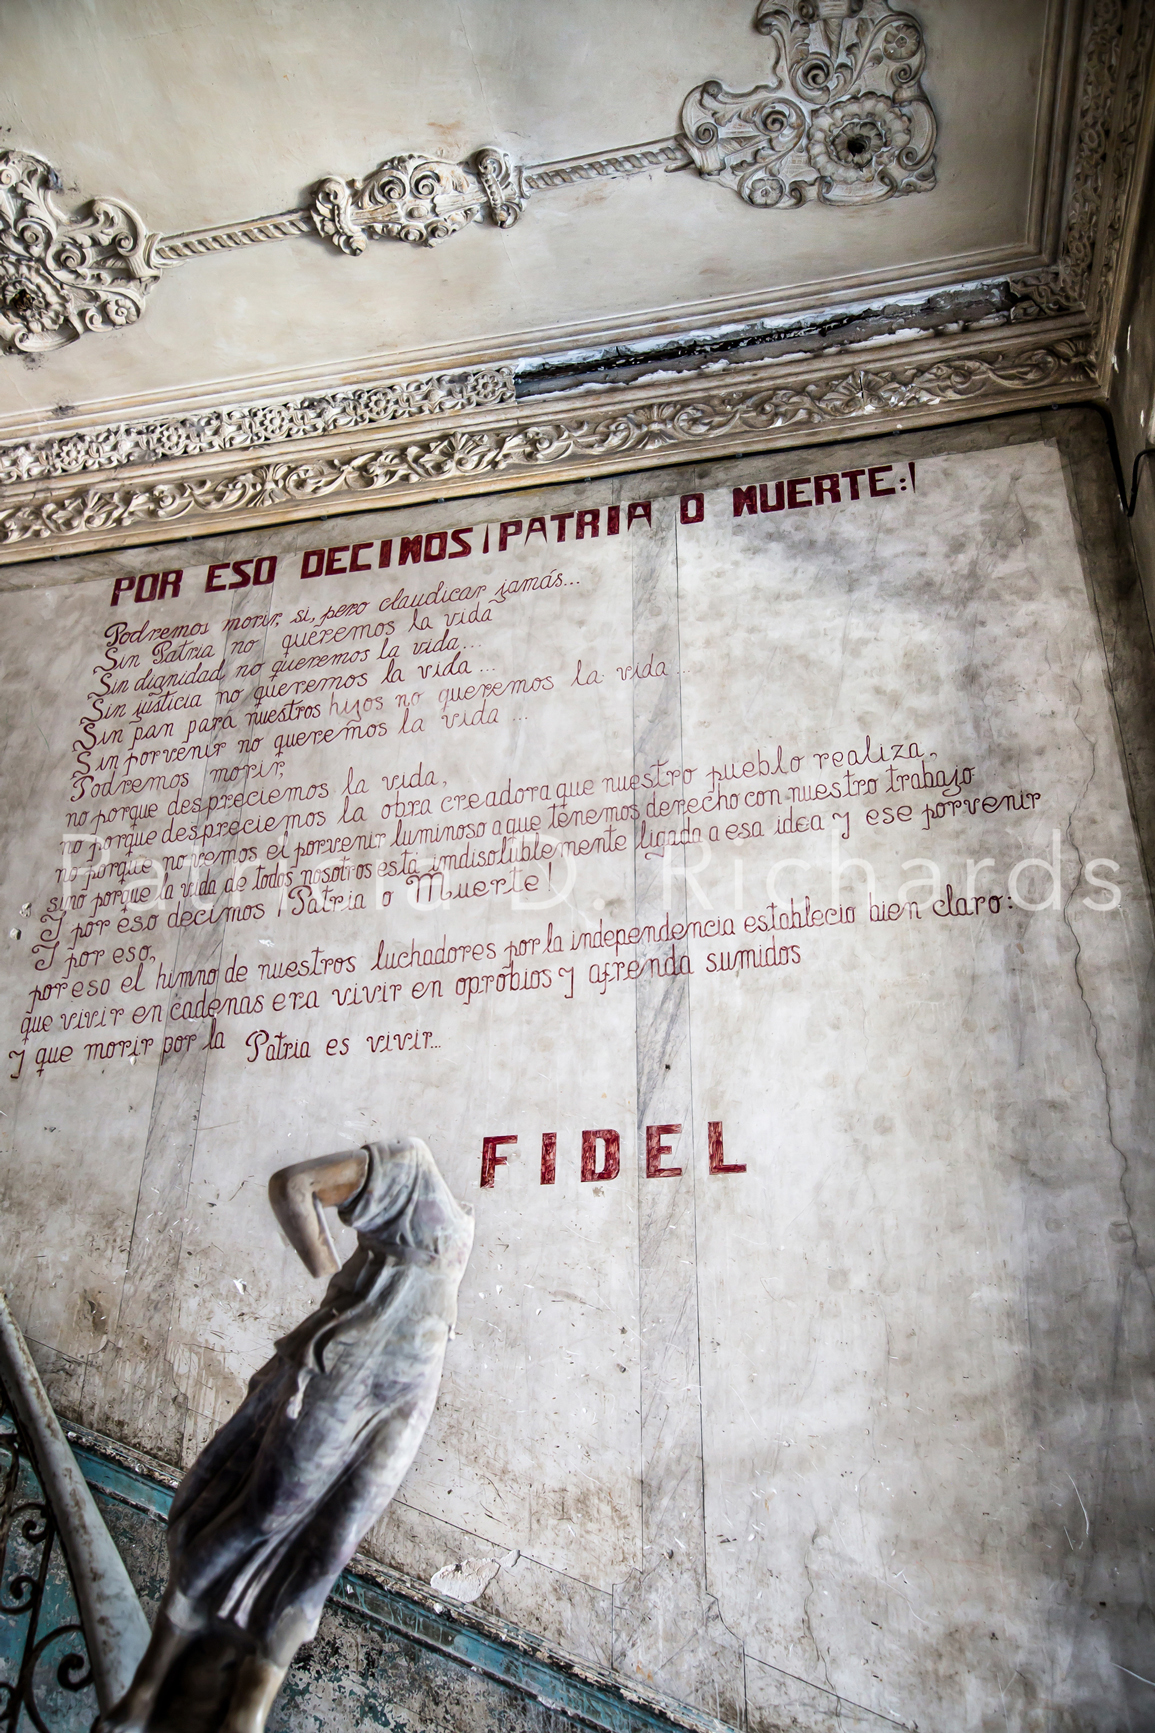 POR ESO DECIMOS ¡PATRIA O MUERTE:!
Podremos morir, si, pero claudicar jamás...
Sin Patria no queremos la vida
Sin dignidad no queremos la vida...
Sin justicia no queremos la vida ...
Sin pan para nuestros hijos no queremos la vida ...
Sin porvenir no queremos la vida ...
Podremos morir,
no porque despreciemos la vida,
no porque despreciemos la obra creadora que nuestro pueblo realiza,
no porque no vemos el porvenir luminoso a que tenemos derecho con nuestro trabajo
sino porque la vida de todos nosotros está indisolublemente ligada a esa idea y ese porvenir
Y por eso decimos ¡Patria o Muerte!
Y por eso,
por eso el himno de nuestros luchadores por la independencia establecio bien claro:
que vivir en cadenas era vivir en oprobios y afrenda sumidos
y que morir por la Patria es vivir...
FIDEL
Patricia D. Richards